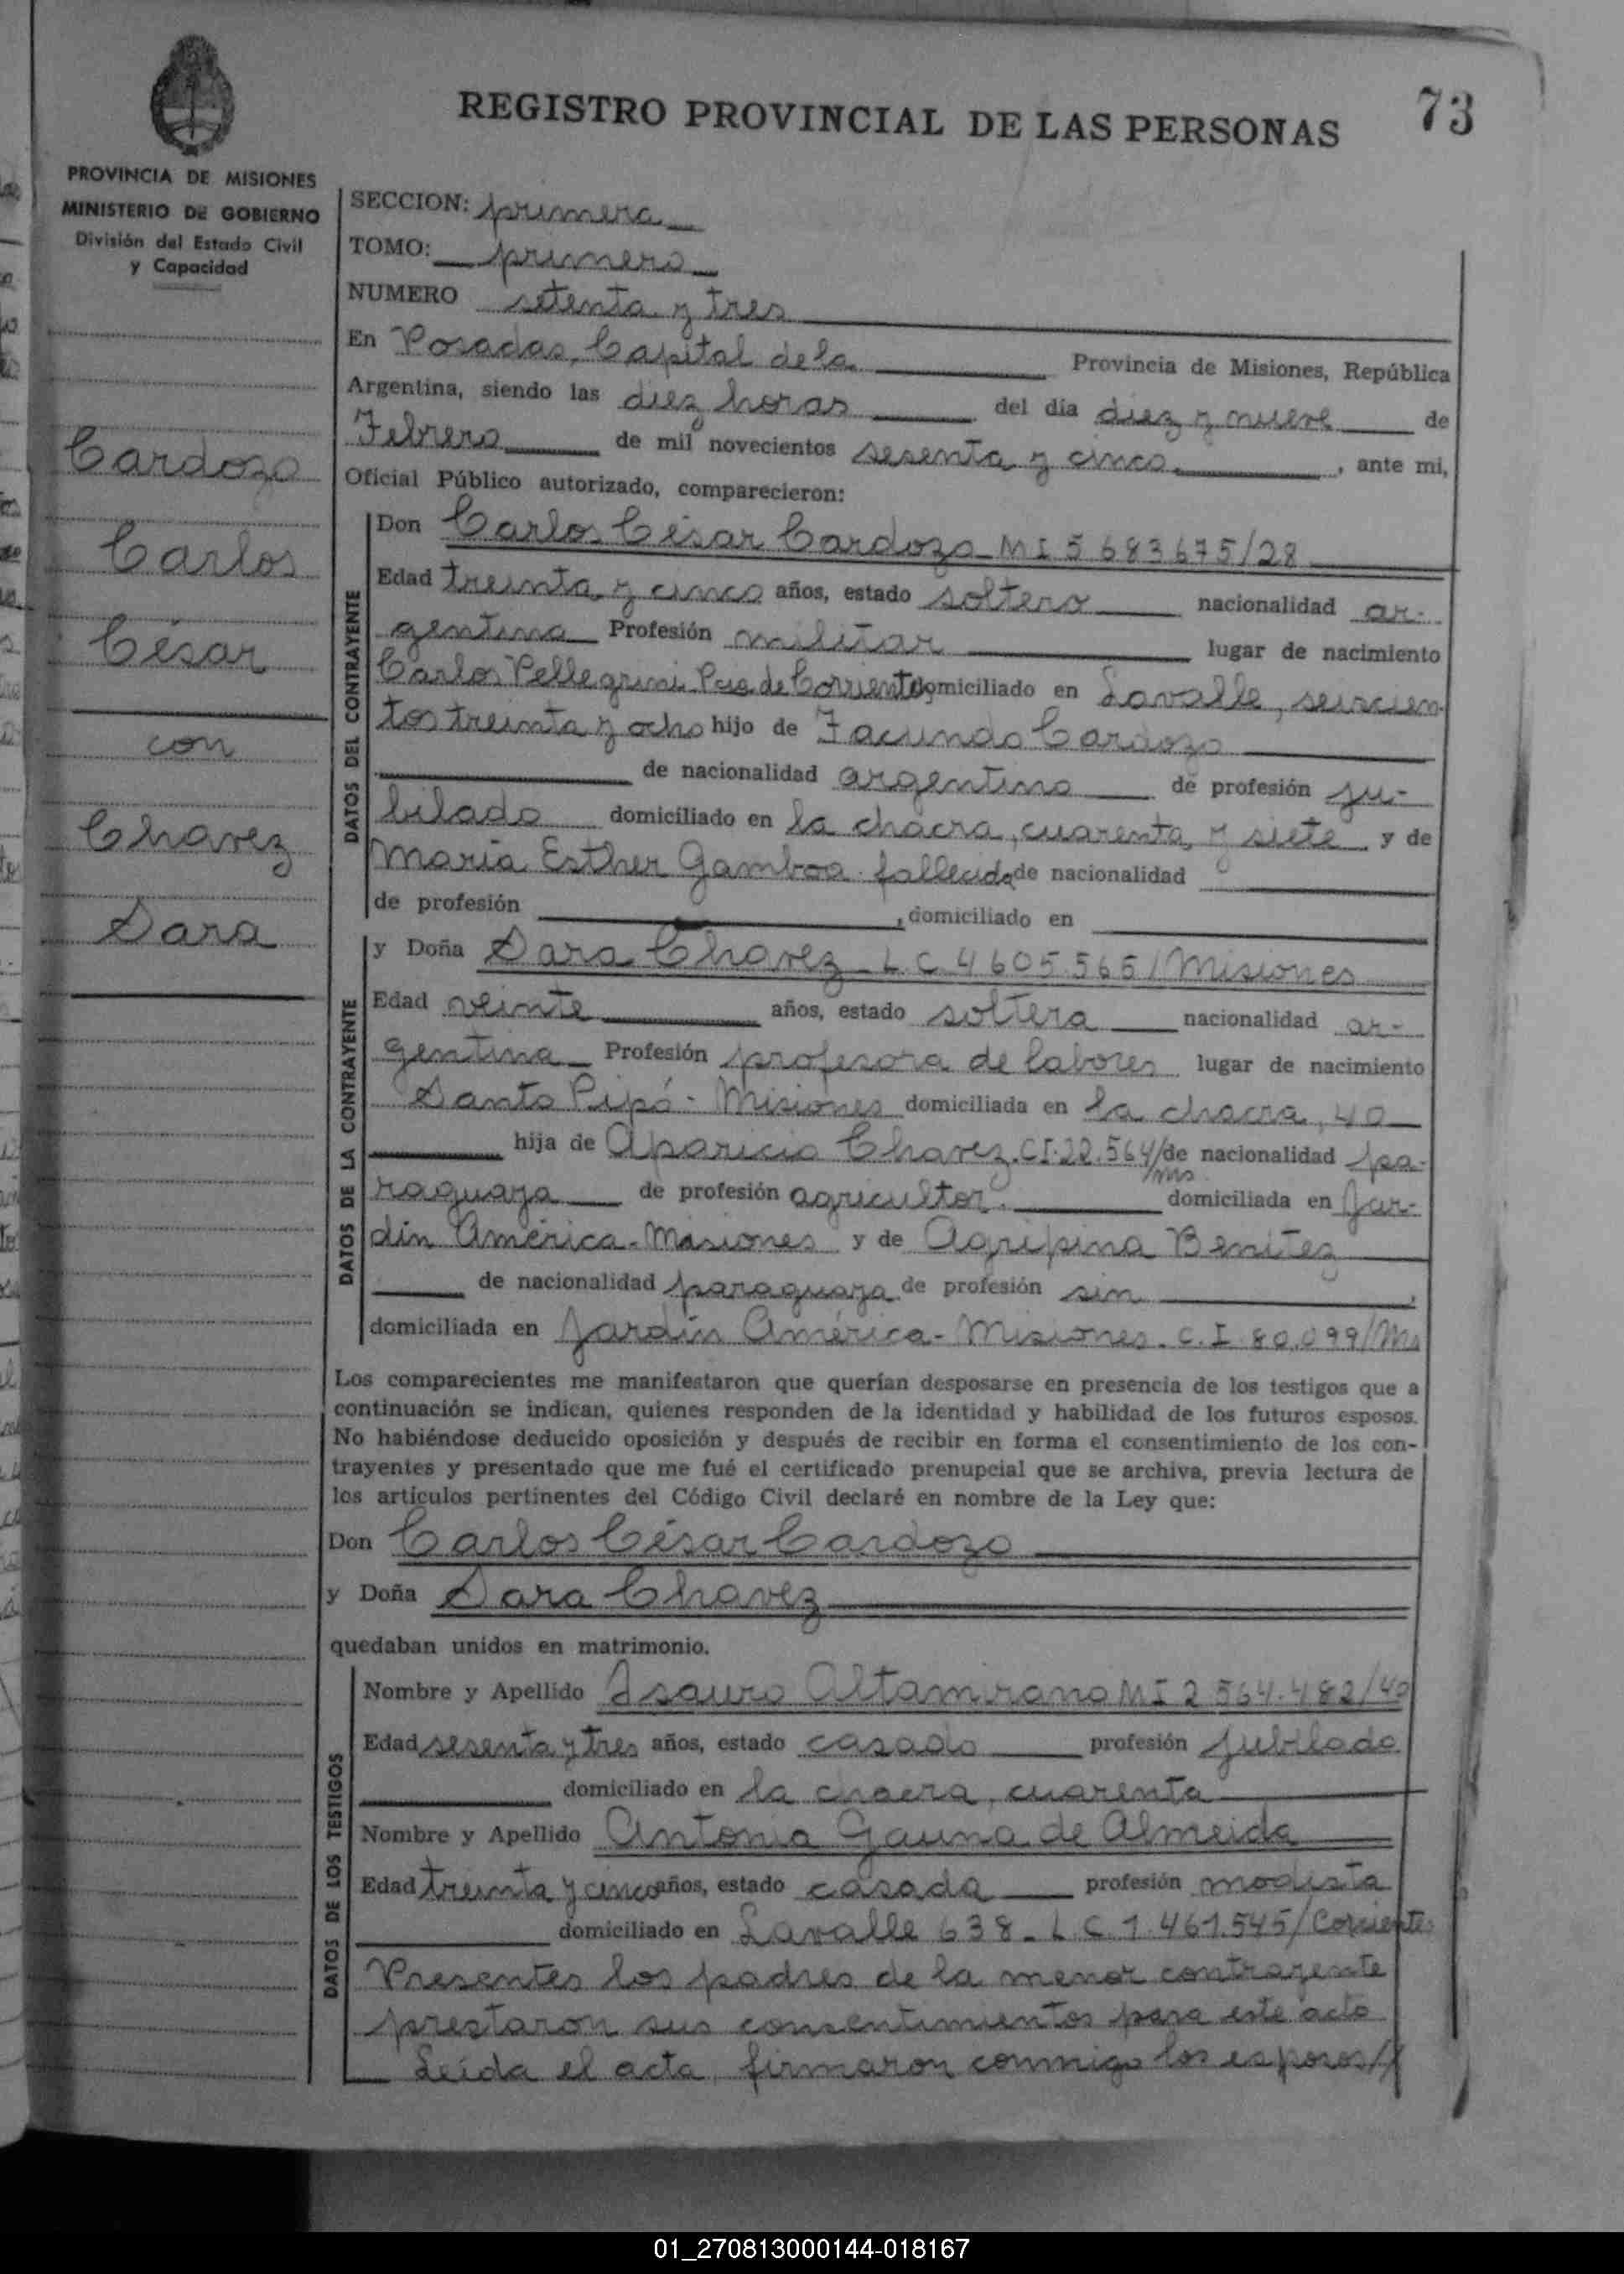 REGISTRO PROVINCIAL DE LAS PERSONAS
73
PROVINCIA DE MISIONES
MINISTERIO DE GOBIERNO
División del Estado Civil
y Capacidad
Cardozo
Carlos
César
con
Chavez
Sara
SECCION: primera
TOMO: primero
NUMERO setenta y tres
En Posadas, Capital de la Provincia de Misiones, República
Argentina, siendo las diez horas del día diez y nueve de
Febrero de mil novecientos sesenta y cinco, ante mi,
Oficial Público autorizado, comparecieron:
DATOS DEL CONTRAYENTE
Don Carlos César Cardozo - MI 5683675/28
Edad treinta y cinco años, estado soltero nacionalidad ar-
gentina Profesión militar lugar de nacimiento
Carlos Pellegrini Pcia de Corrientes domiciliado en Lavalle, seiscien-
tos treinta y ocho hijo de Facundo Cardozo
de nacionalidad argentino de profesión ju-
bilado domiciliado en la chacra, cuarenta y siete y de
María Esther Gamboa fallecida de nacionalidad
de profesión , domiciliado en
DATOS DE LA CONTRAYENTE
y Doña Sara Chavez - L.C 4605.565/Misiones
Edad veinte años, estado soltera nacionalidad ar-
gentina Profesión profesora de labores lugar de nacimiento
Santo Pipó - Misiones domiciliada en la chacra, 40
hija de Aparicio Chavez. C I. 22.564/ms de nacionalidad pa-
raguaya de profesión agricultor. domiciliada en Jar-
dín América - Misiones y de Agripina Benítez
de nacionalidad paraguaya de profesión sin ,
domiciliada en Jardín América - Misiones. C. I 80.099/Ms
Los comparecientes me manifestaron que querían desposarse en presencia de los testigos que a
continuación se indican, quienes responden de la identidad y habilidad de los futuros esposos.
No habiéndose deducido oposición y después de recibir en forma el consentimiento de los con-
trayentes y presentado que me fué el certificado prenupcial que se archiva, previa lectura de
los artículos pertinentes del Código Civil declaré en nombre de la Ley que:
Don Carlos César Cardozo
y Doña Sara Chavez
quedaban unidos en matrimonio.
DATOS DE LOS TESTIGOS
Nombre y Apellido Isauro Altamirano MI 2 564.482/40
Edad sesenta y tres años, estado casado profesión jubilado
domiciliado en la chacra, cuarenta
Nombre y Apellido Antonia Gauna de Almeida
Edad treinta y cinco años, estado casada profesión modista
domiciliado en Lavalle 638 - L C 1.461.545/Corrientes
Presentes los padres de la menor contrayente
prestaron sus consentimientos para este acto
Leída el acta, firmaron conmigo los esposos//
01_270813000144-018167